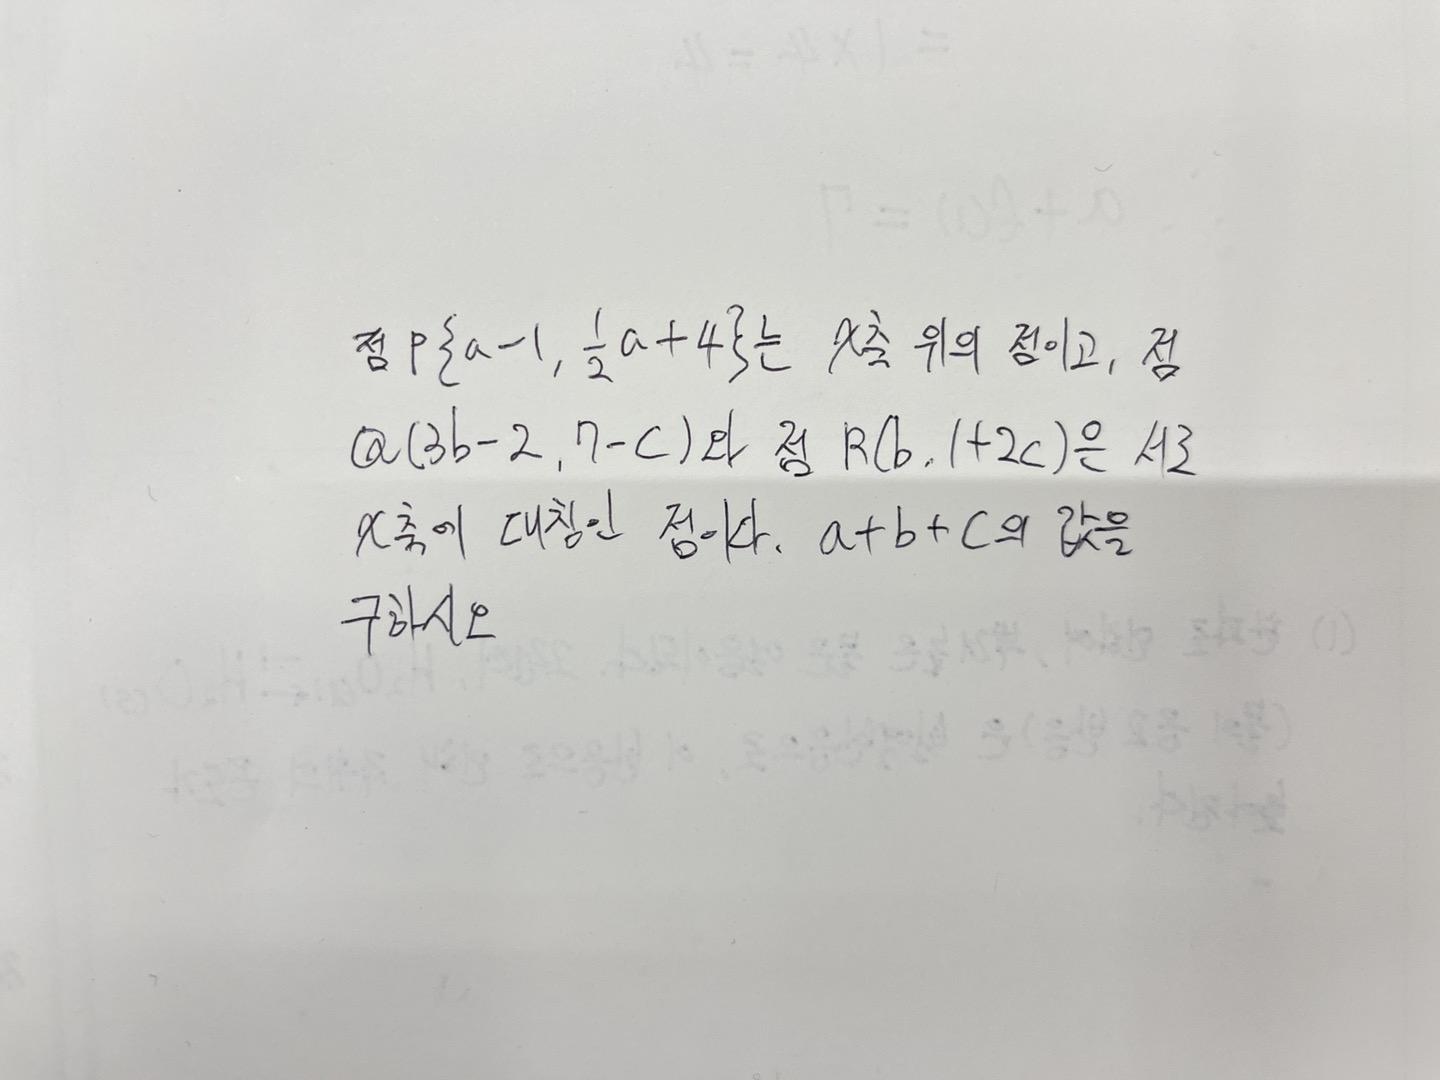 점 P{a-1, 1/2 a+4}는 x축 위의 점이고, 점
Q(3b-2, 7-c)와 점 R(b, 1+2c)은 서로
x축에 대칭인 점이다. a+b+c의 값을
구하시오